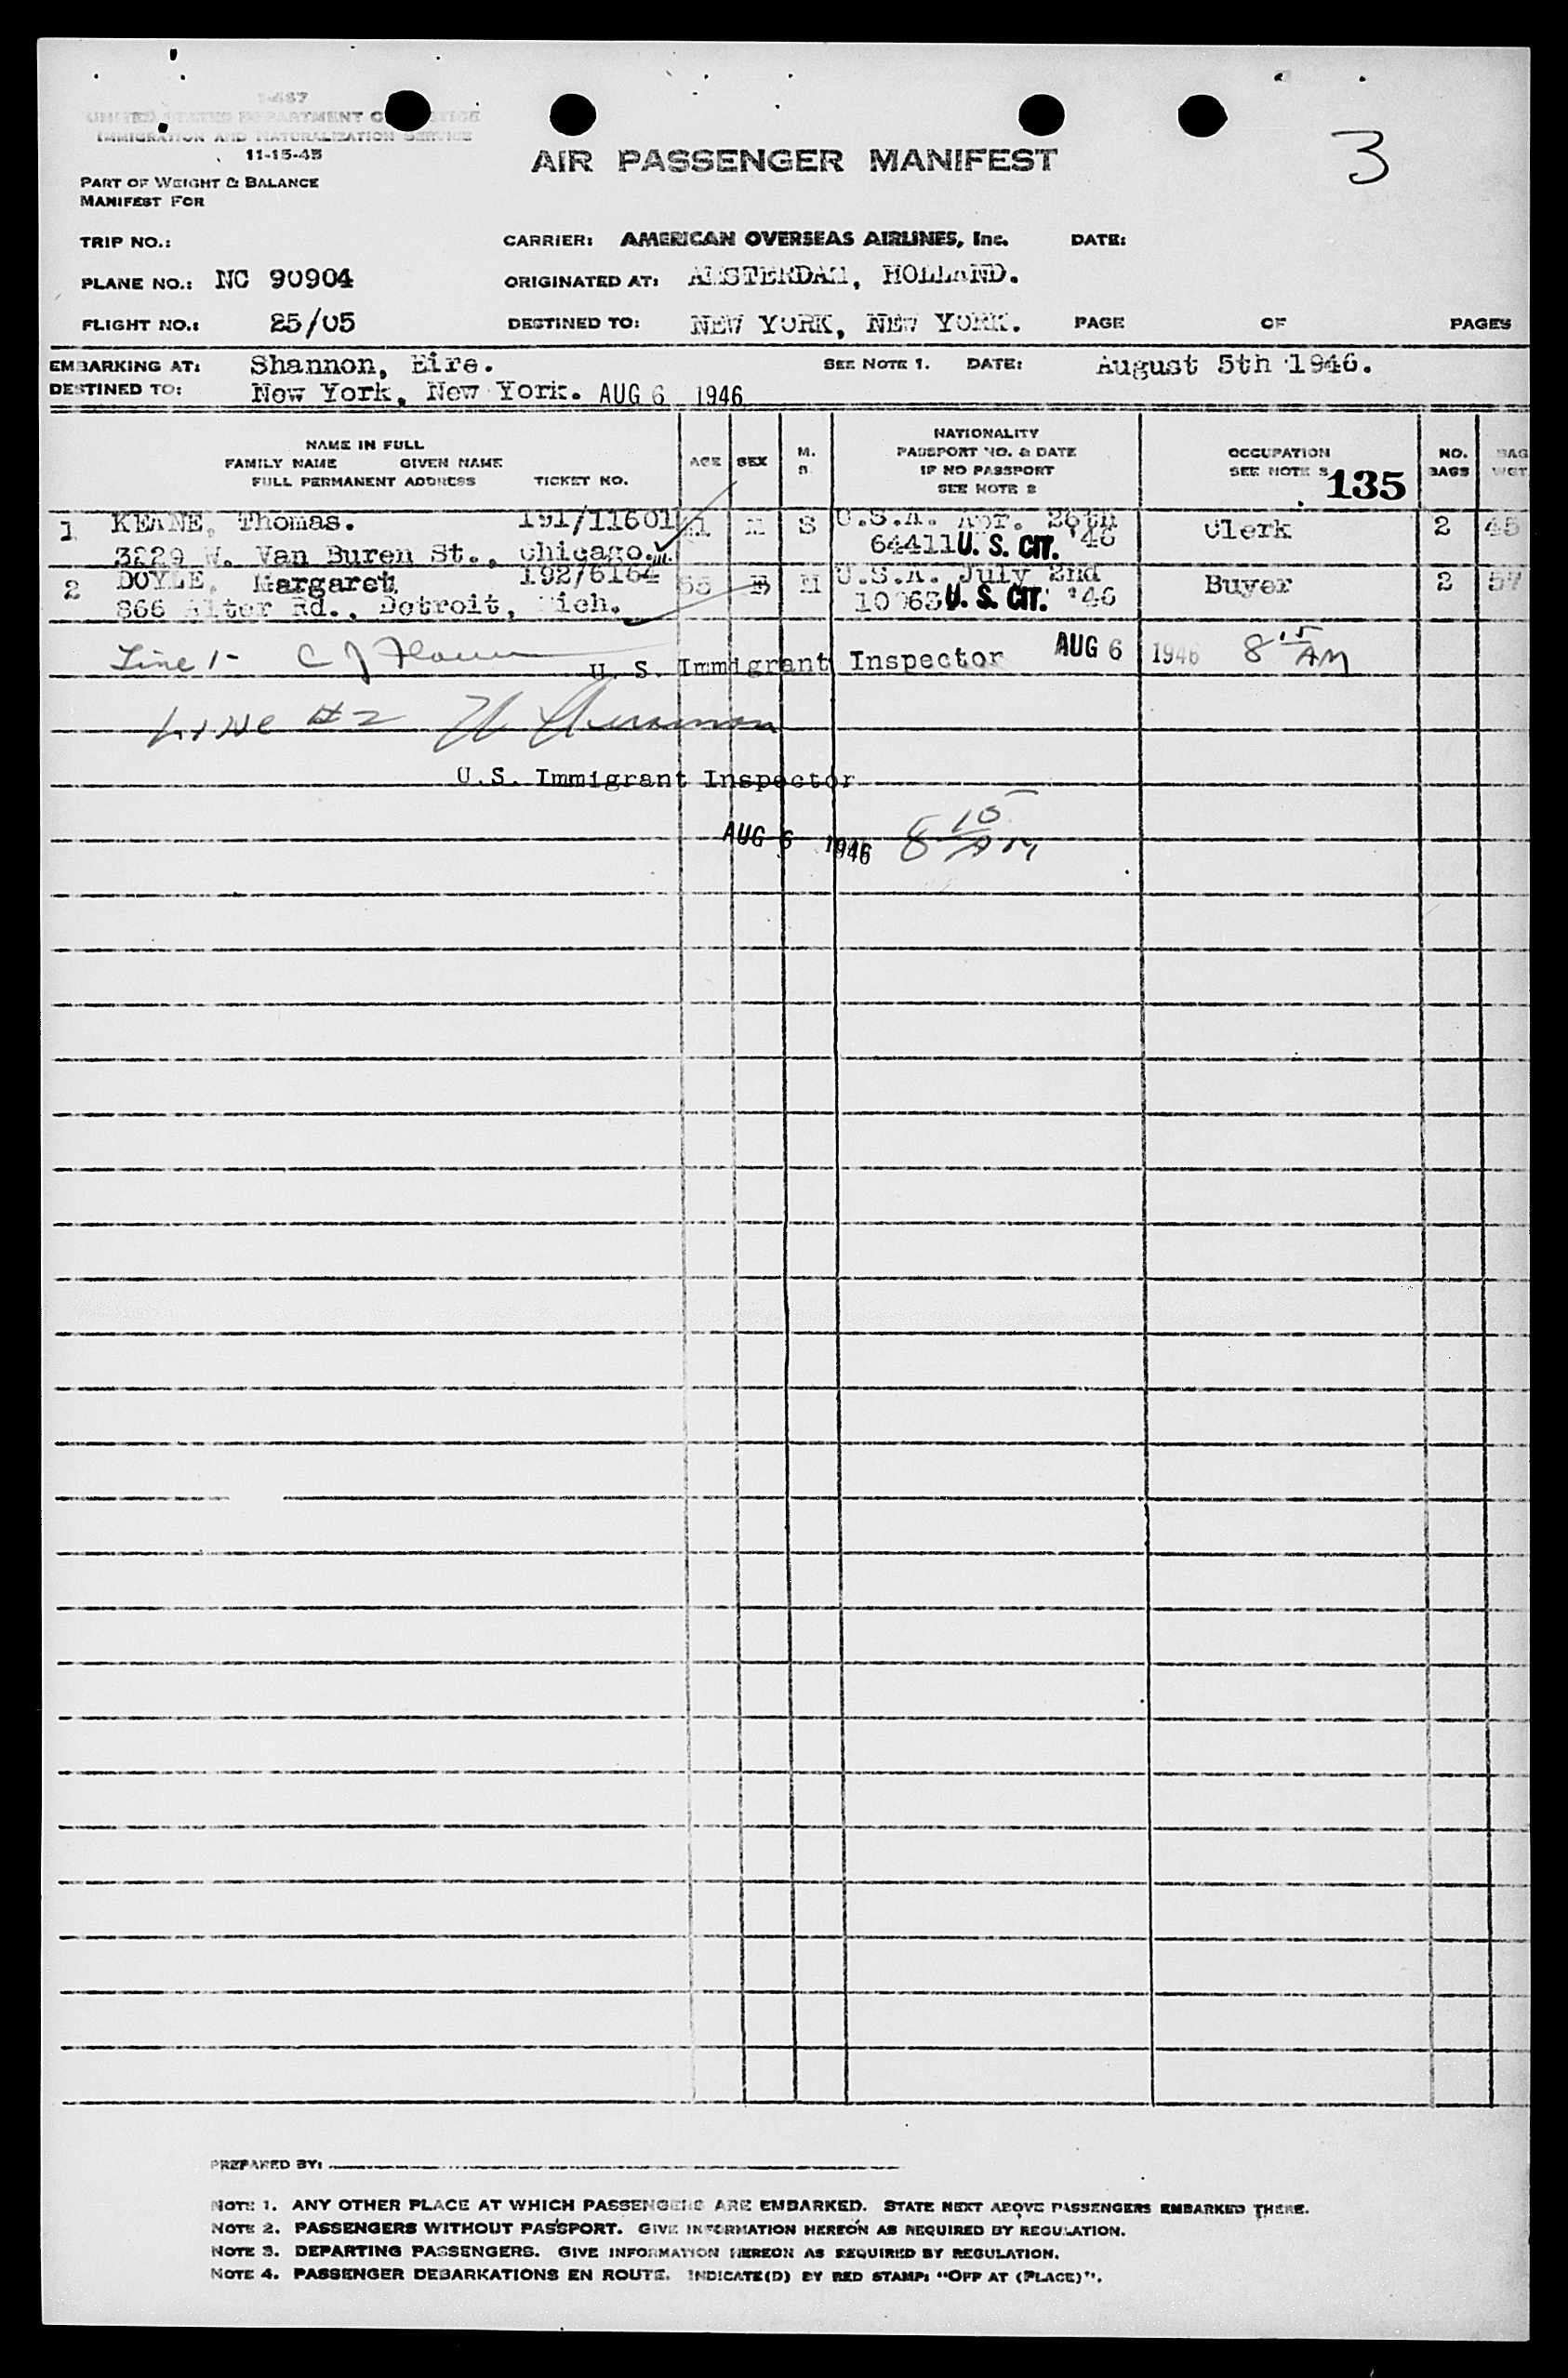 I-487
UNITED STATES DEPARTMENT OF JUSTICE
IMMIGRATION AND NATURALIZATION SERVICE
11-15-45
AIR PASSENGER MANIFEST
3
PART OF WEIGHT & BALANCE
MANIFEST FOR
TRIP NO.: CARRIER: AMERICAN OVERSEAS AIRLINES, Inc. DATE:
PLANE NO.: NC 90904 ORIGINATED AT: AMSTERDAM, HOLLAND.
FLIGHT NO.: 25/05 DESTINED TO: NEW YORK, NEW YORK. PAGE OF PAGES
EMBARKING AT: Shannon, Eire. SEE NOTE 1. DATE: August 5th 1946.
DESTINED TO: New York, New York. AUG 6 1946
NAME IN FULL
FAMILY NAME GIVEN NAME
FULL PERMANENT ADDRESS TICKET NO.
AGE SEX M. S.
NATIONALITY
PASSPORT NO. & DATE
IF NO PASSPORT
SEE NOTE 2
OCCUPATION
SEE NOTE 3 135
NO.
BAGS
BAG
WGT
1 KEANE, Thomas. 191/11601 M S U.S.A. Apr. 26th Clerk 2 45
3229 W. Van Buren St., Chicago. Ill. 64411 U. S. CIT. '46
2 DOYLE, Margaret 192/6164 55 M U.S.A. July 2nd Buyer 2 57
866 Alter Rd., Detroit, Mich. U. S. CIT. '46
Line 1- C J
U. S. Immigrant Inspector AUG 6 1946 8 15 AM
Line #2
U.S. Immigrant Inspector
AUG 6 1946 8 15 AM
PREPARED BY:
NOTE 1. ANY OTHER PLACE AT WHICH PASSENGERS ARE EMBARKED. STATE NEXT ABOVE PASSENGERS EMBARKED THERE.
NOTE 2. PASSENGERS WITHOUT PASSPORT. GIVE INFORMATION HEREON AS REQUIRED BY REGULATION.
NOTE 3. DEPARTING PASSENGERS. GIVE INFORMATION HEREON AS REQUIRED BY REGULATION.
NOTE 4. PASSENGER DEBARKATIONS EN ROUTE. INDICATE(D) BY RED STAMP: "OFF AT (PLACE)".